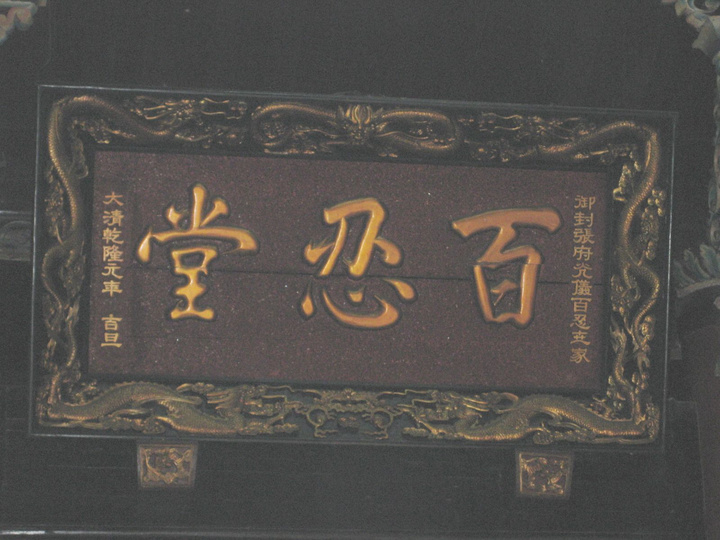 御封張府公儀百忍世家
百忍堂
大清乾隆元年 吉旦